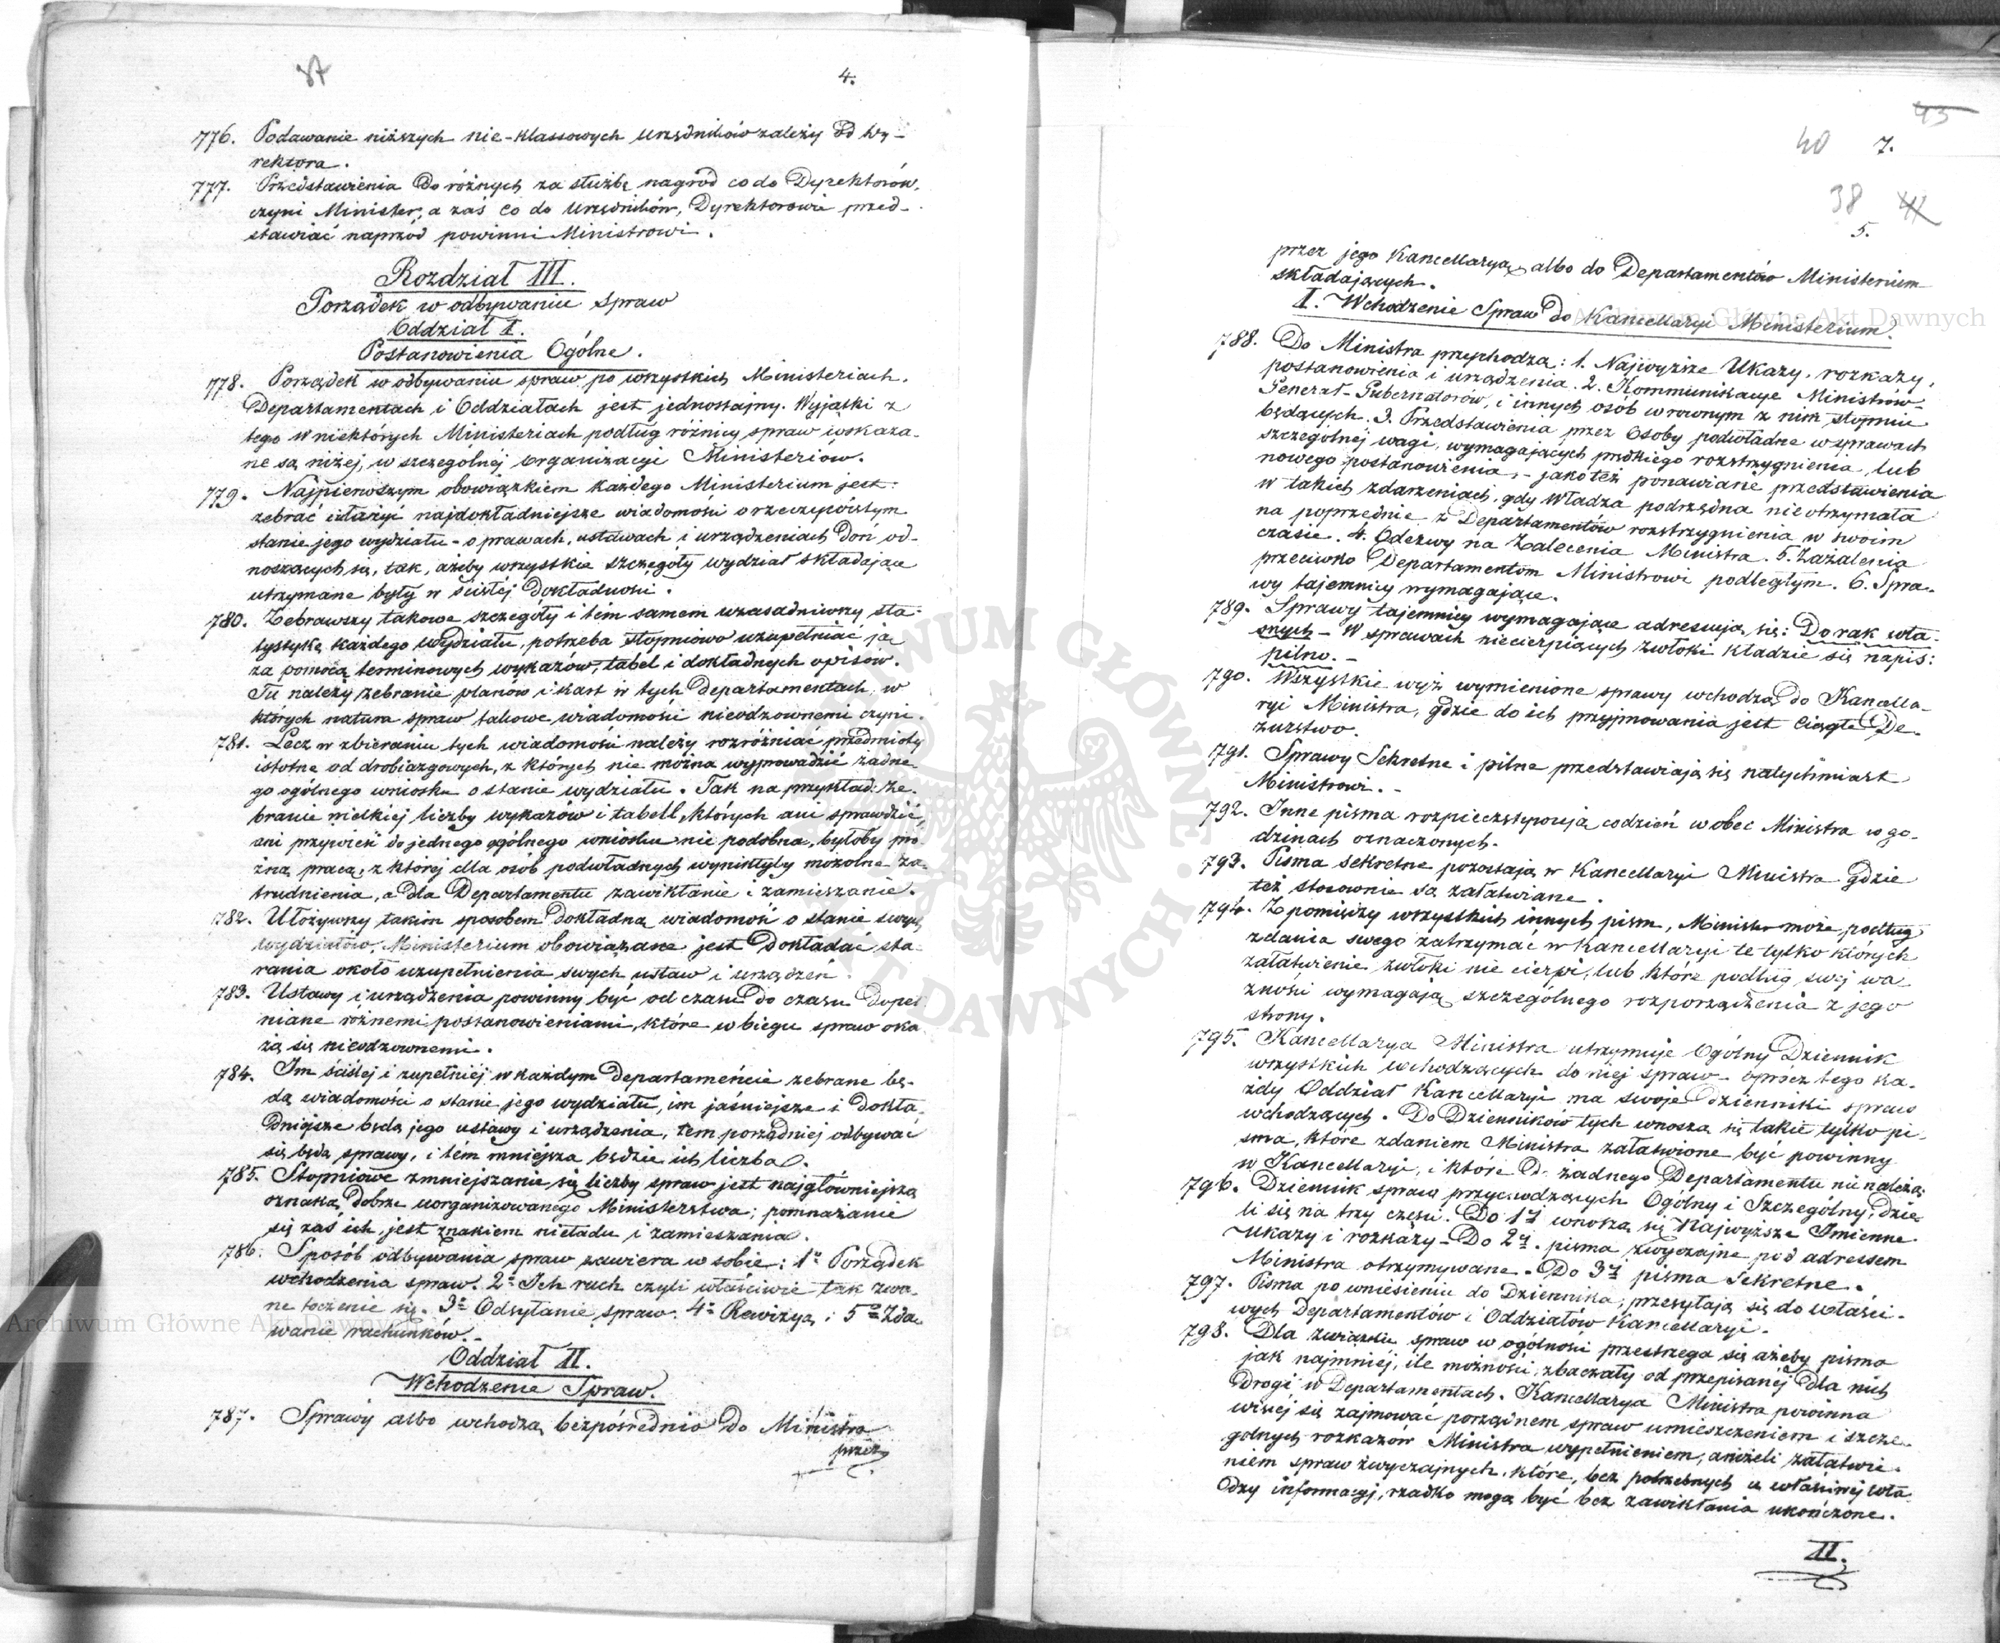 37
4.
776. Podawanie niższych nie-klassowych urzędników zależy od Dy-
rektora.
777. Przedstawienia do różnych za służbę nagród co do Dyrektorów,
czyni Minister, a zaś co do urzędników, Dyrektorowie przed-
stawiać naprzód powinni Ministrowi.
Rozdział III.
Porządek w odbywaniu spraw
Oddział I.
Postanowienia Ogólne.
778. Porządek w odbywaniu spraw po wszystkich Ministeriach,
Departamentach i Oddziałach jest jednostajny. Wyjątki z
tego w niektórych Ministeriach podług różnicy spraw wskaza-
ne są niżej, w szczególnej organizacyi Ministeriów.
779. Najpierwszym obowiązkiem każdego Ministerium jest:
zebrać i ułożyć najdokładniejsze wiadomości o rzeczywistym
stanie jego wydziału - o prawach, ustawach i urządzeniach doń od-
noszących się, tak, ażeby wszystkie szczegóły wydział składające
utrzymane były w ścisłej dokładności.
780. Zebrawszy takowe szczegóły i tém samem uzasadniwszy sta-
tystykę każdego wydziału, potrzeba stopniowo uzupełniać ją
za pomocą terminowych wykazów, tabel i dokładnych opisów.
Tu należy zebranie planów i kart w tych Departamentach, w
których natura spraw takowe wiadomości nieodzownemi czyni.
781. Lecz w zbieraniu tych wiadomości należy rozróżniać przedmioty
istotne od drobiazgowych, z których nie można wyprowadzić żadne-
go ogólnego wniosku o stanie wydziału. Tak na przykład: Ze-
branie wielkiej liczby wykazów i tabell, których ani sprawdzić,
ani przywieść do jednego ogólnego wniosku nie podobna, byłoby pró-
żną pracą, z której dla osób podwładnych wynikłyby mozolne za-
trudnienia, a dla Departamentu zawikłanie i zamieszanie.
782. Ułożywszy takim sposobem dokładną wiadomość o stanie swych
wydziałów, Ministerium obowiązane jest dokładać sta-
rania około uzupełnienia swych ustaw i urządzeń.
783. Ustawy i urządzenia powinny być od czasu do czasu dopeł
niane róźnemi postanowieniami, które w biegu spraw oka
żą się nieodzownemi.
784. Im ściślej i zupełniej w każdym Departamencie zebrane bę-
dą wiadomości o stanie jego wydziału, im jaśniejsze i dokła-
dniejsze będą jego ustawy i urządzenia, tem porządniej odbywać
się będą sprawy, i tém mniejsza będzie ich liczba.
785. Stopniowe zmniejszanie się liczby spraw jest najgłówniejszą
oznaką dobrze uorganizowanego Ministerstwa; pomnażanie
się zaś ich, jest znakiem nieładu i zamieszania.
786. Sposób odbywania spraw zawiera w sobie: 1º Porządek
wchodzenia spraw. 2º Ich ruch czyli właściwie tak zwa-
ne toczenie się. 3º Odsyłanie spraw. 4º Rewizyą i 5º Zda-
wanie rachunków.
Oddział II.
Wchodzenie Spraw.
787. Sprawy albo wchodzą bezpośrednio do Ministra
przez
45
40 7.
38 41
5.
przez jego Kancellaryą, albo do Departamentów Ministerium
składających.
I. Wchodzenie Spraw do Kancellaryi Ministerium.
788. Do Ministra przychodzą: 1. Najwyższe Ukazy, rozkazy,
postanowienia i urządzenia. 2. Kommunikacye Ministrów
Generał-Gubernatorów, i innych osób w rownym z nim stopniu
będących. 3. Przedstawienia przez Osoby podwładne w sprawach
szczególnej wagi, wymagających prędkiego rozstrzygnienia, lub
nowego postanowienia, - jako też ponawiane przedstawienia
w takich zdarzeniach, gdy Władza podrzędna nie otrzymała
na poprzednie z Departamentów rozstrzygnienia w swoim
czasie. 4. Odezwy na Zalecenia Ministra. 5. Zażalenia
przeciwko Departamentom Ministrowi podległym. 6. Spra-
wy tajemnicy wymagające.
789. Sprawy tajemnicy wymagające adresują się: Do rak wła-
snych - W sprawach niecierpiących zwłoki kładzie się napis:
pilno. -
790. Wszystkie wyż wymienione sprawy wchodzą do Kancella-
ryi Ministra, gdzie do ich przyjmowania jest ciągłe De-
żurstwo.
791. Sprawy Sekretne i pilne przedstawiają się natychmiast
Ministrowi. -
792. Inne pisma rozpieczętowują codzień w obec Ministra w go-
dzinach oznaczonych.
793. Pisma sekretne pozostają w Kancellaryi Ministra gdzie
też stosownie są załatwiane.
794. Z pomiędzy wszystkich innych pism, Minister może podług
zdania swego zatrzymać w Kancellaryi te tylko których
załatwienie zwłoki nie cierpi, lub które podług swej wa
żności wymagają szczególnego rozporządzenia z jego
strony.
795. Kancellarya Ministra utrzymuje Ogólny Dziennik
wszystkich wchodzących do niej spraw - oprócz tego ka-
żdy Oddział Kancellaryi ma swoje dzienniki spraw
wchodzących. Do Dzienników tych wnoszą się takie tylko pi-
sma, które zdaniem Ministra załatwione być powinny
w Kancellaryi, i które do żadnego Departamentu nie należą.
796. Dziennik spraw przychodzących Ogólny i Szczególny, dzie-
li się na trzy części. Do 1éj wnoszą się Najwyższe Imienne
Ukazy i rozkazy - Do 2éj. pisma zwyczajne pod adressem
Ministra otrzymywane. Do 3éj pisma Sekretne.
797. Pisma po wniesieniu do Dziennika, przesyłają się do właści-
wych Departamentów i Oddziałów Kancellaryi.
798. Dla związku spraw w ogólności przestrzega się ażeby pisma
jak najmniej, ile możności, zbaczały od przepisanéj dla nich
drogi w Departamentach. Kancellarya Ministra powinna
więcej się zajmować porządnem spraw umieszczeniem i szcze-
gólnych rozkazów Ministra wypełnieniem, aniżeli załatwie-
niem spraw zwyczajnych, które, bez potrzebnych u właściwej wła-
dzy informacyj, rzadko mogą być bez zawikłania ukończone.
II.
Archiwum Główne Akt Dawnych
Archiwum Główne Akt Dawnych
ARCHIWUM GŁÓWNE AKT DAWNYCH